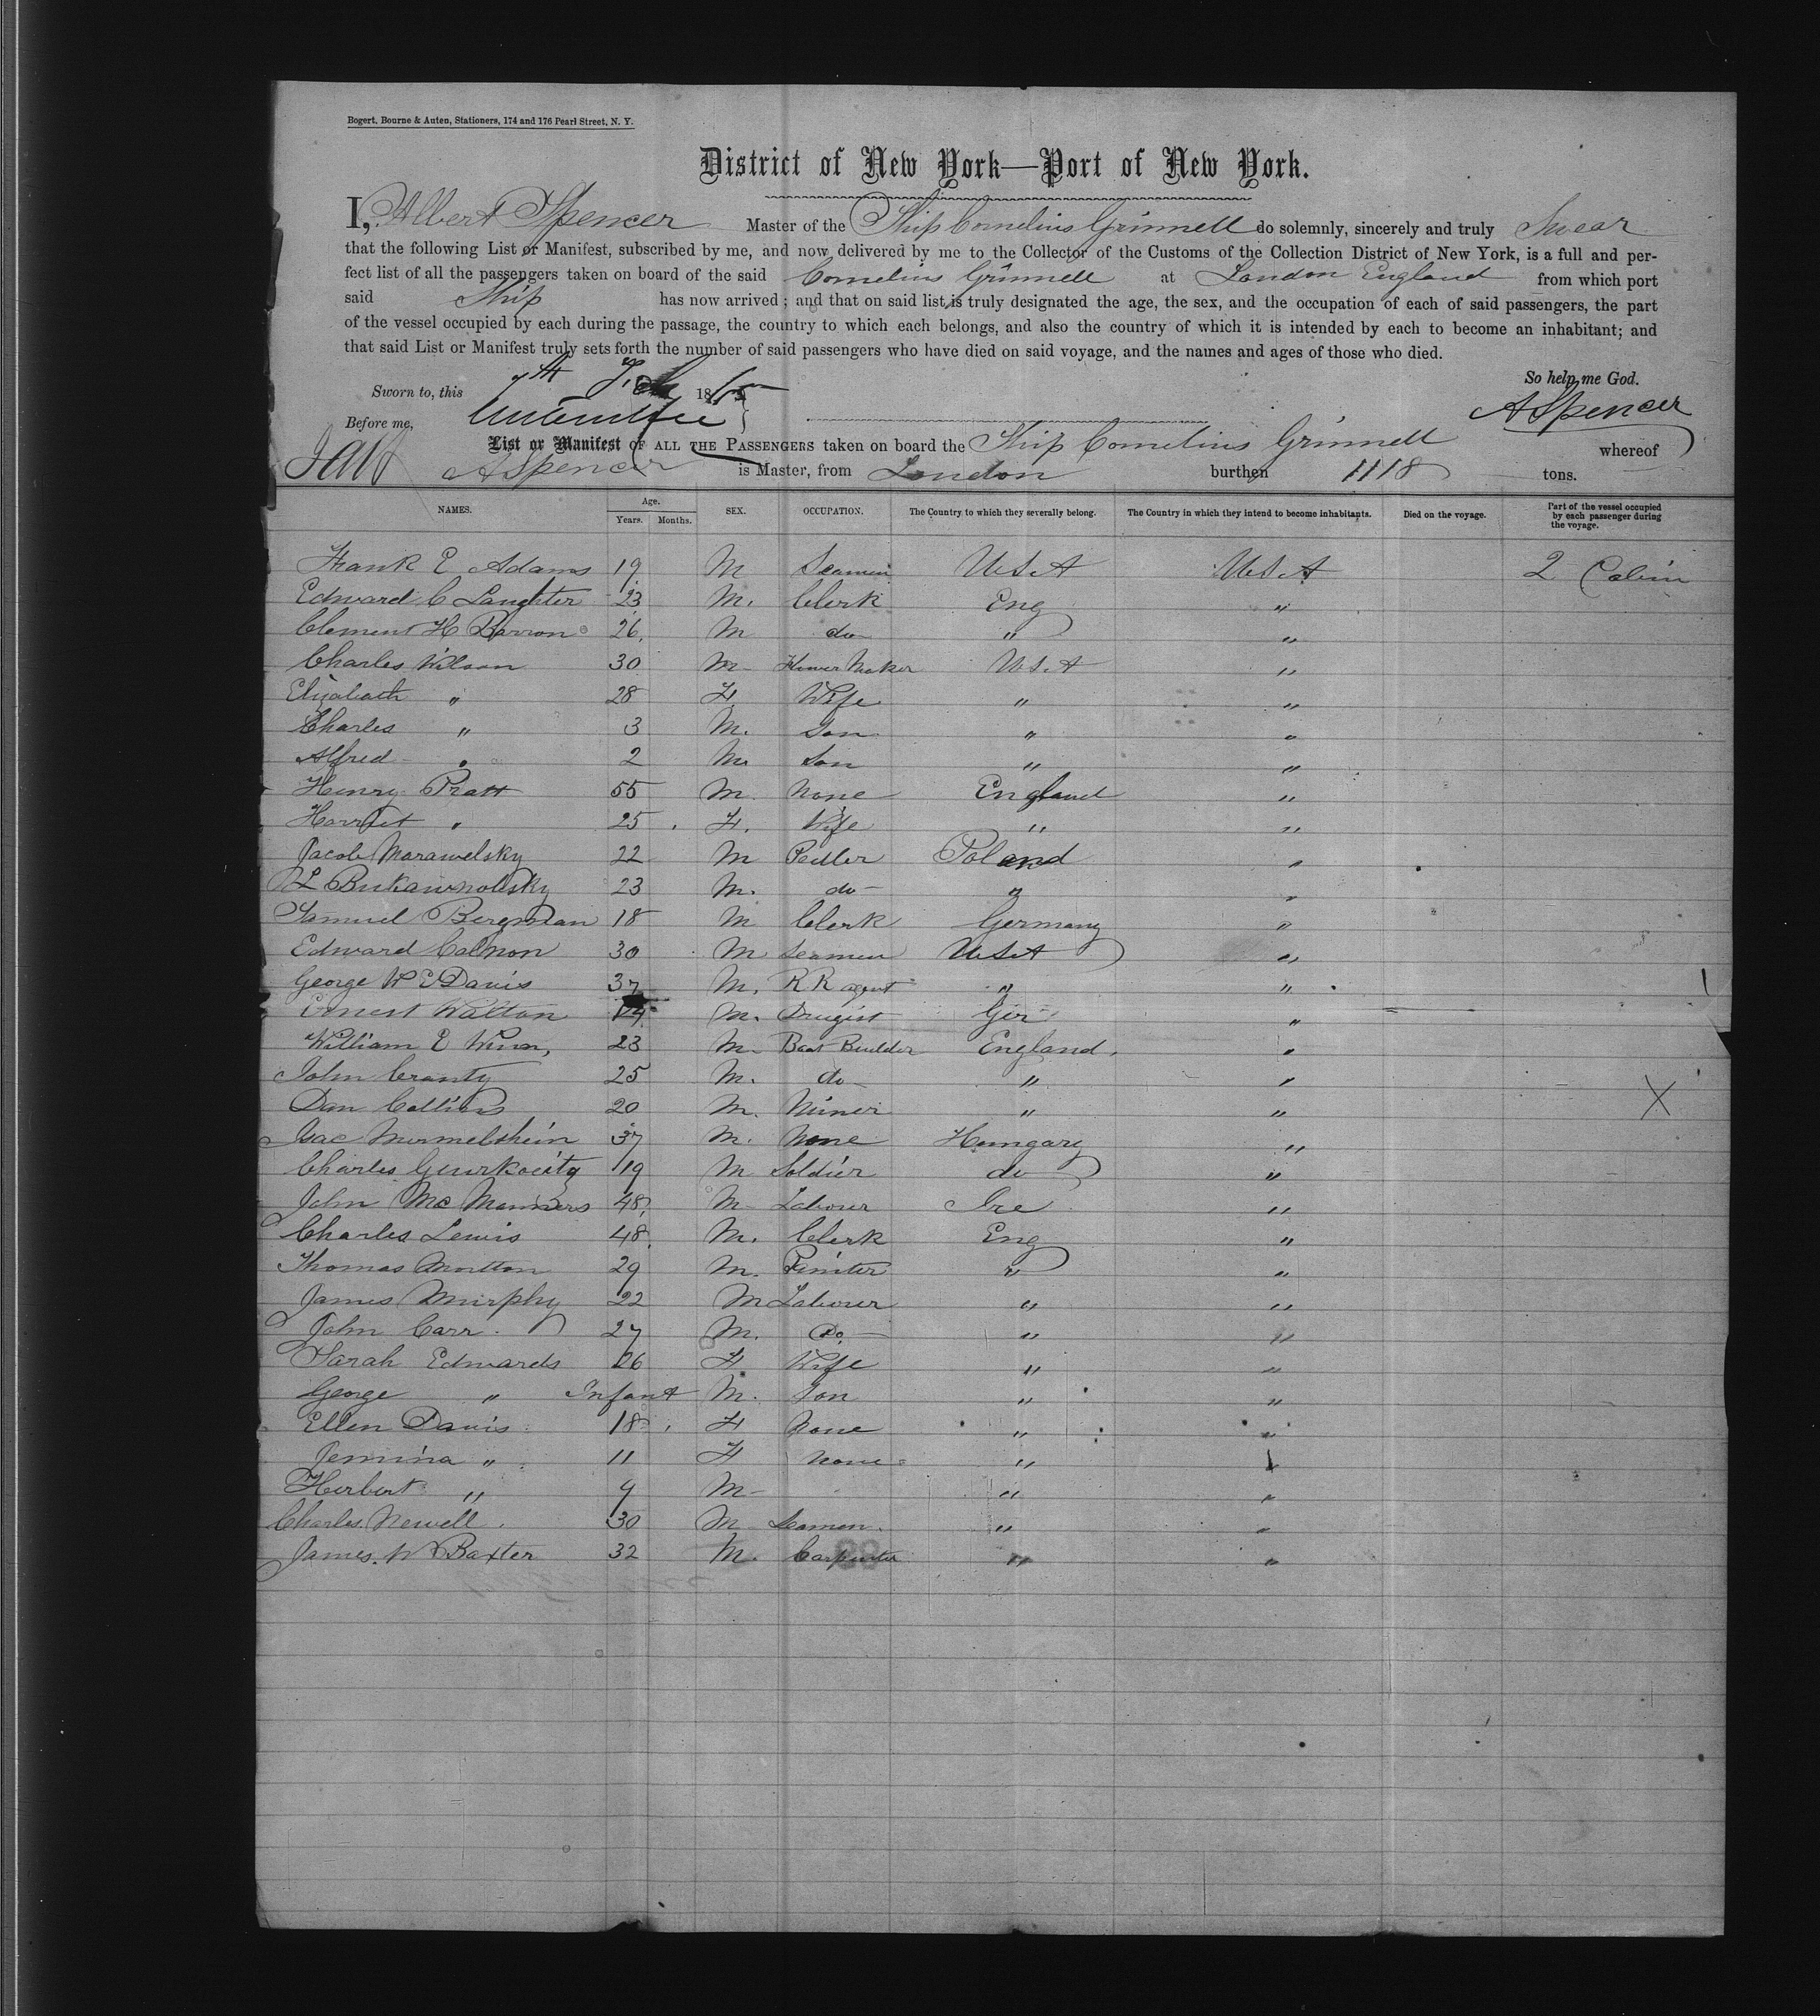 Bogert, Bourne & Auten, Stationers, 174 and 176 Pearl Street, N. Y.
District of New York—Port of New York.
I, Albert Spencer Master of the Ship Cornelius Grinnell do solemnly, sincerely and truly Swear
that the following List or Manifest, subscribed by me, and now delivered by me to the Collector of the Customs of the Collection District of New York, is a full and per-
fect list of all the passengers taken on board of the said Cornelius Grinnell at London England from which port
said Ship has now arrived; and that on said list is truly designated the age, the sex, and the occupation of each of said passengers, the part
of the vessel occupied by each during the passage, the country to which each belongs, and also the country of which it is intended by each to become an inhabitant; and
that said List or Manifest truly sets forth the number of said passengers who have died on said voyage, and the names and ages of those who died.
So help me God.
Sworn to, this 7th Feb 1865
A Spencer
Before me,
List or Manifest OF ALL THE PASSENGERS taken on board the Ship Cornelius Grinnell whereof
A Spencer is Master, from London burthen 1118 tons.
NAMES. Age. Years. Months. SEX. OCCUPATION. The Country to which they severally belong. The Country in which they intend to become inhabitants. Died on the voyage. Part of the vessel occupied by each passenger during the voyage.
Frank E Adams 19 M Seamen U.S.A U.S.A 2 Cabin
Edward C Laughter 23 M. Clerk Eng "
Clement H Barron 26 M do " "
Charles Wilson 30 M Flower Maker U.S.A "
Elizabeth " 28 F. Wife " "
Charles " 3 M. Son " "
Alfred " 2 M. Son " "
Henry Pratt 55 M. None England "
Harriet " 25 F. Wife " "
Jacob Morawelsky 22 M Pedler Poland "
23 M. do " "
Samuel Bergman 18 M Clerk Germany "
Edward Calnon 30 M Seamen U.S.A "
George W E Davis 37 M. R R agent " "
Ernest Walton M. Drugist Ger "
William E 23 M. Boat Builder England "
John Cranty 25 M. do " "
Dan Collins 20 M. Miner " "
Isac Mermelshein 37 M. None Hungary "
Charles 19 M Soldier do "
John Mc Manners 48 M Labourer Ire "
Charles Lewis 48 M. Clerk Eng "
Thomas Moulton 29 M. " "
James Murphy 22 M Labourer " "
John Carr 27 M. Do. " "
Sarah Edwards 26 F Wife " "
George " Infant M. Son " "
Ellen Davis 18 F None " "
Jemina " 11 F None " "
Herbert " 9 M " "
Charles Newell 30 M Seamen " "
James. W Baxter 32 M. Carpenter " "